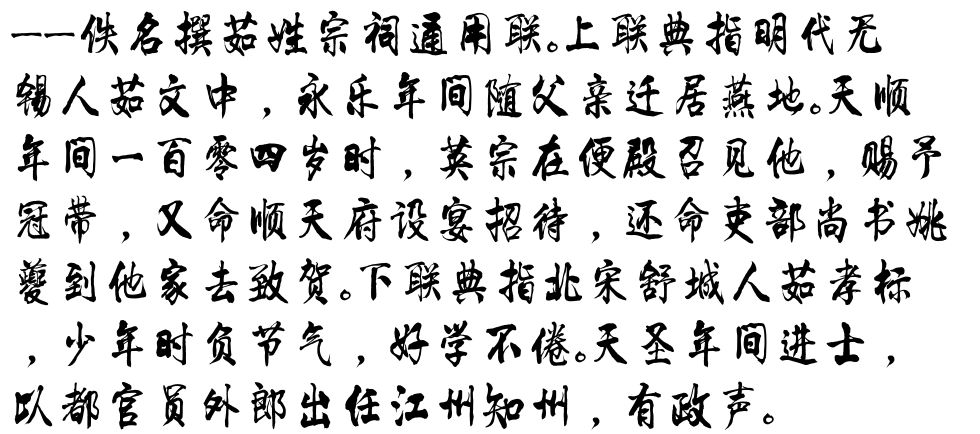 ——佚名撰茹姓宗祠通用联。上联典指明代无
锡人茹文中，永乐年间随父亲迁居燕地。天顺
年间一百零四岁时，英宗在便殿召见他，赐予
冠带，又命顺天府设宴招待，还命吏部尚书姚
夔到他家去致贺。下联典指北宋舒城人茹孝标
，少年时负节气，好学不倦。天圣年间进士，
以都官员外郎出任江州知州，有政声。